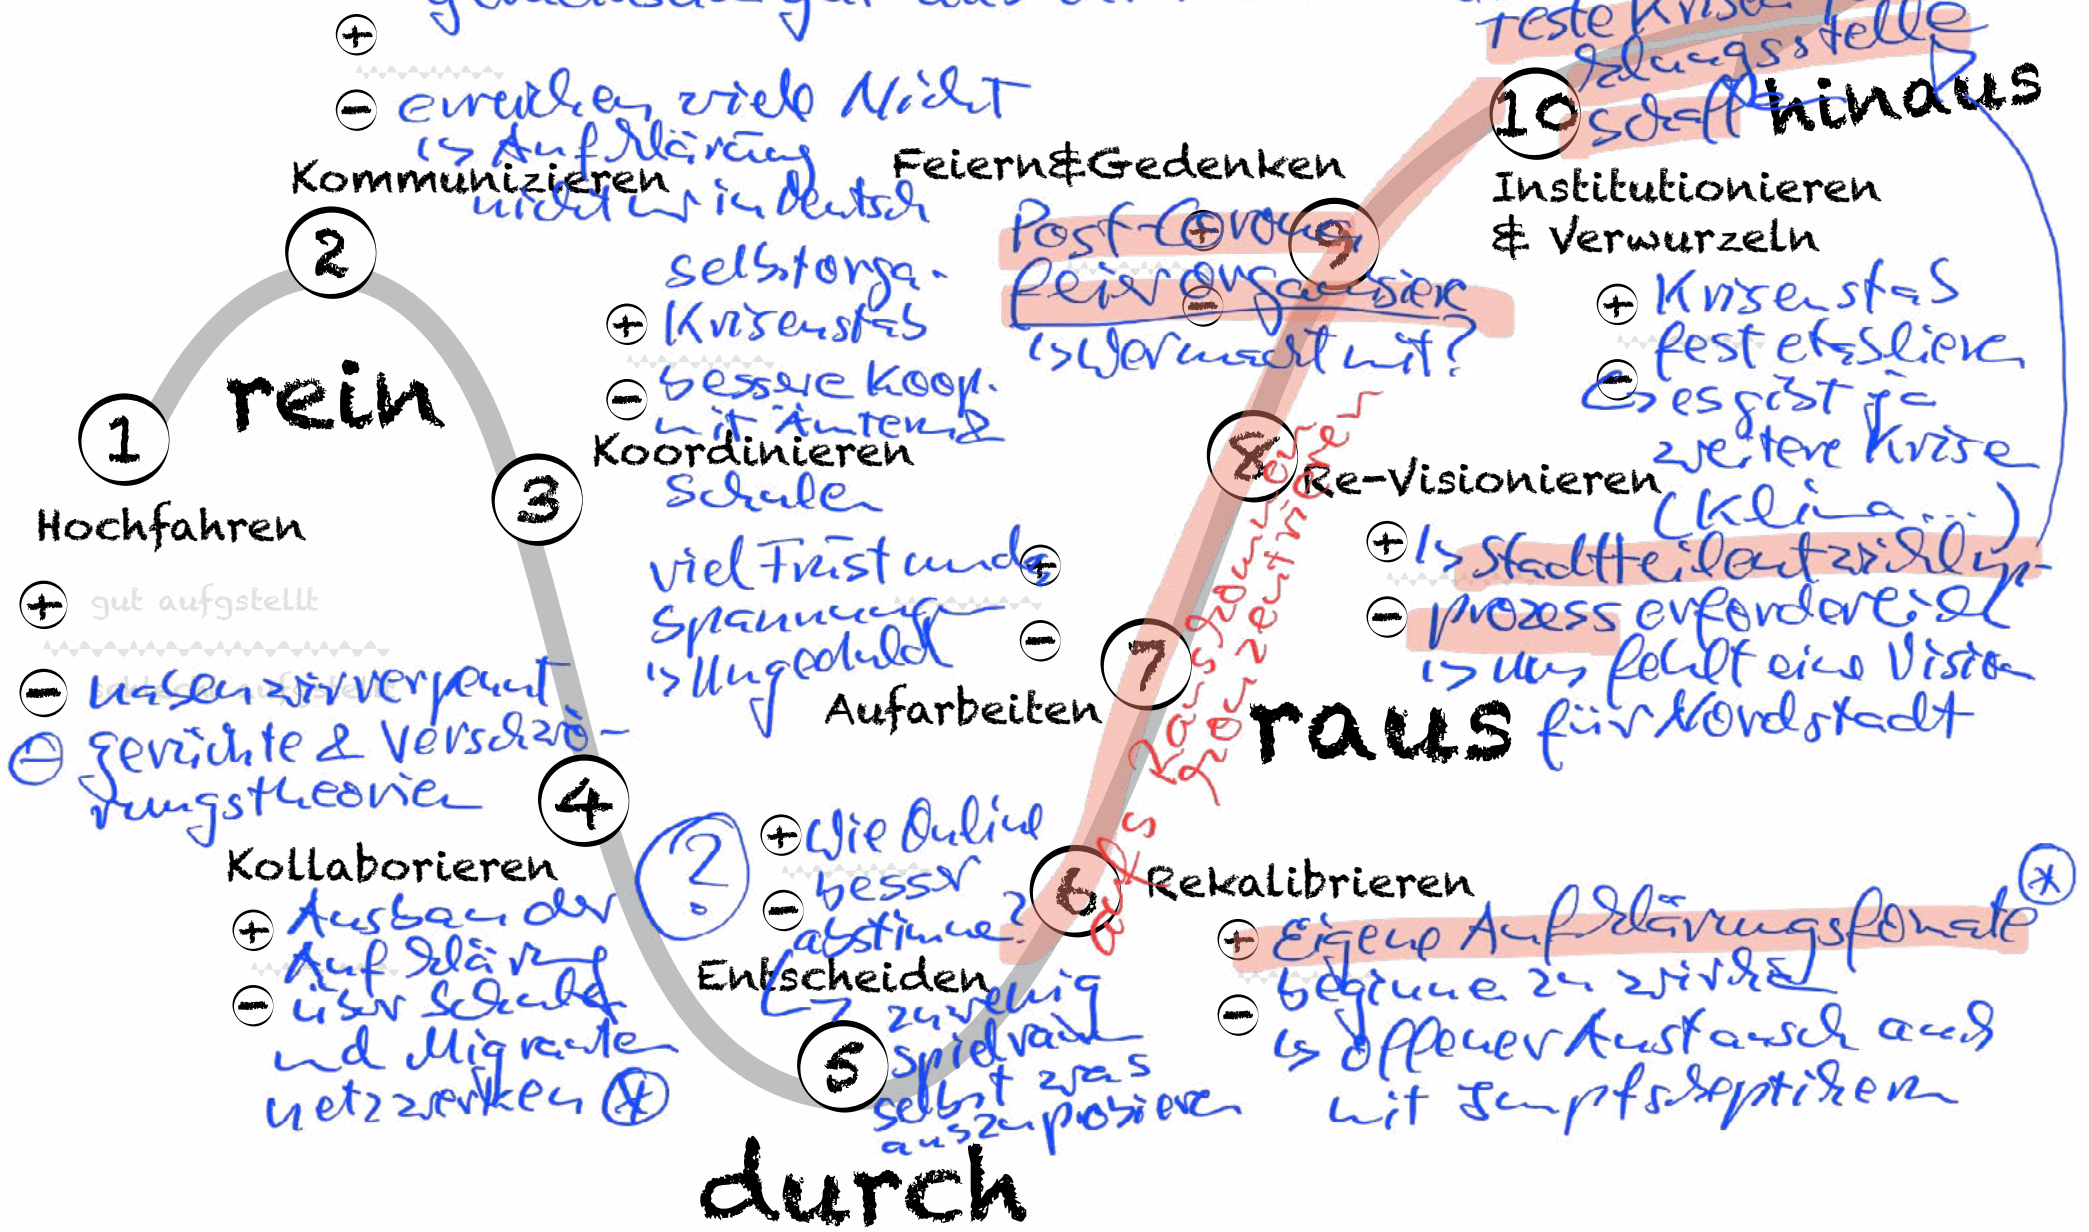 +
−
erreichen viele Nicht
↳ Aufklärung
Kommunizieren
nicht nur in Deutsch
2
rein
1
Hochfahren
+ gut aufgstellt
−
haben wir verpennt
− gerüchte & Verschwö-
rungstheorien
selbstorga.
+ Krisenstab
− bessere Koop.
mit Ämtern &
Koordinieren
Schulen
3
4
Kollaborieren
+ Ausbau der
Aufklärung
− über Schulen
und Migranten
netzwerken *
?
+ Wie Online
besser
− abstimmen?
Entscheiden
→ zu wenig
spielraum
selbst was
auszuprobieren
5
durch
6
Rekalibrieren
+ Eigene Aufklärungsformate *
beginnen zu wirken
−
↳ offener Austausch auch
mit Impfskeptikern
viel Frust und +
Spannungen
−
↳ Ungeduld
Aufarbeiten
7
raus
8
Re-Visionieren
+ ↳ Stadtteilentwicklungs-
− prozess erforderlich
↳ uns fehlt eine Vision
für Nordstadt
Feiern&Gedenken
+ Post-Corona
− feier organisieren
↳ Wer macht mit?
9
feste Krisen
stelle
schaft
10
hinaus
Institutionieren
& Verwurzeln
+ Krisenstab
fest etablieren
−
↳ es gibt ja
weitere Krise
(Klima...)